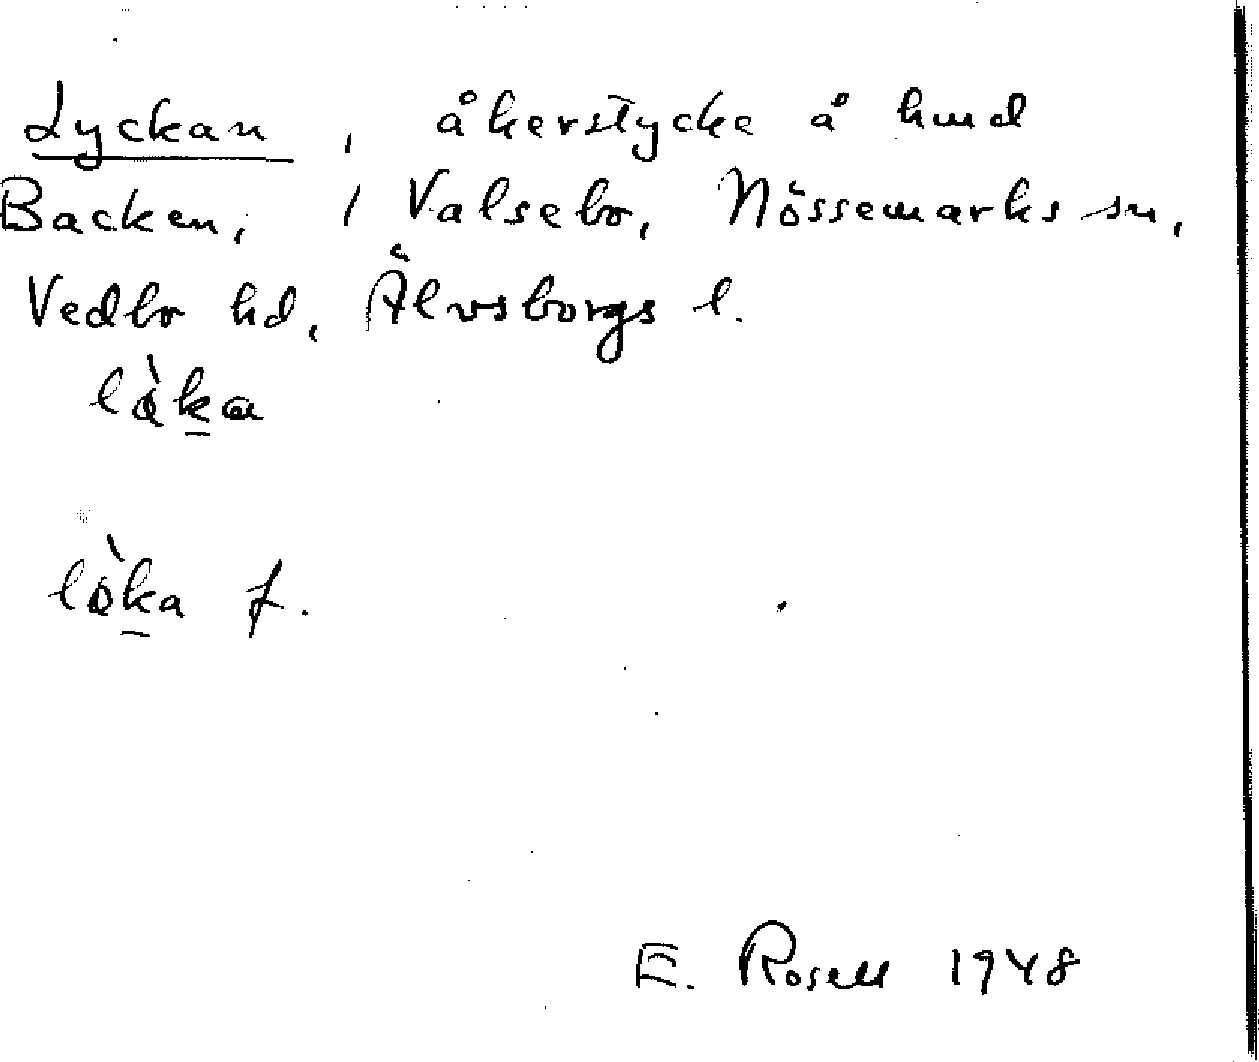 Lyckan, åkerstycke å hmd
Backen, i Valsebo, Nössemarks sn,
Vedbo hd, Älvsborgs l.
lòka
lòka f.
E. Rosell 1948